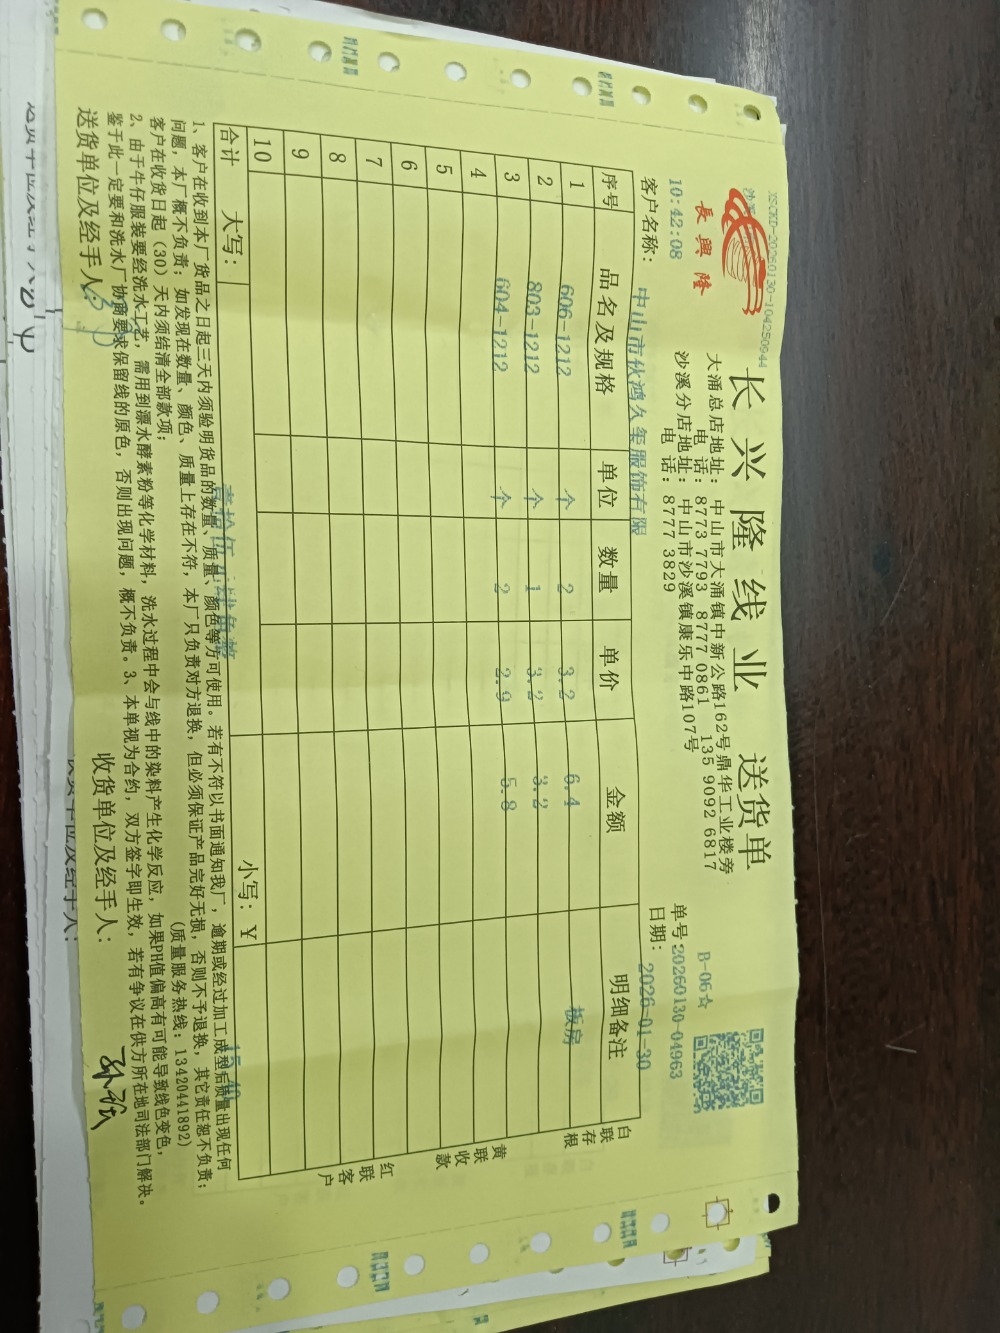 XSCKD-20260130-104250944
長興隆
长兴隆线业 送货单
大涌总店地址：中山市大涌镇中新公路162号鼎华工业楼旁
电话：8773 7793 8777 0861 135 9092 6817
沙溪分店地址：中山市沙溪镇康乐中路107号
电话：8777 3829
B-06☆
10:42:08
单号:20260130-04963
客户名称：中山市伙鸿久玺服饰有限
日期：2026-01-30
序号 品名及规格 单位 数量 单价 金额 明细备注
1 606-1212 个 2 3.2 6.4 板房
2 803-1212 个 1 3.2 3.2
3 604-1212 个 2 2.9 5.8
4
5
6
7
8
9
10
合计 大写： 小写：￥
白联存根
黄联收款
红联客户
1、客户在收到本厂货品之日起三天内须验明货品的数量、质量、颜色等方可使用。若有不符以书面通知我厂，逾期或经过加工成型后质量出现任何
问题，本厂概不负责；如发现在数量、颜色、质量上存在不符，本厂只负责对方退换，但必须保证产品完好无损，否则不予退换，其它责任恕不负责；
客户在收货日起（30）天内须结清全部款项；（质量服务热线：13420441892）
2、由于牛仔服装要经洗水工艺，需用到漂水酵素粉等化学材料，洗水过程中会与线中的染料产生化学反应，如果PH值偏高有可能导致线色变色，
鉴于此一定要和洗水厂协商要求保留线的原色，否则出现问题，概不负责。3、本单视为合约，双方签字即生效，若有争议在供方所在地司法部门解决。
送货单位及经手人：
收货单位及经手人：